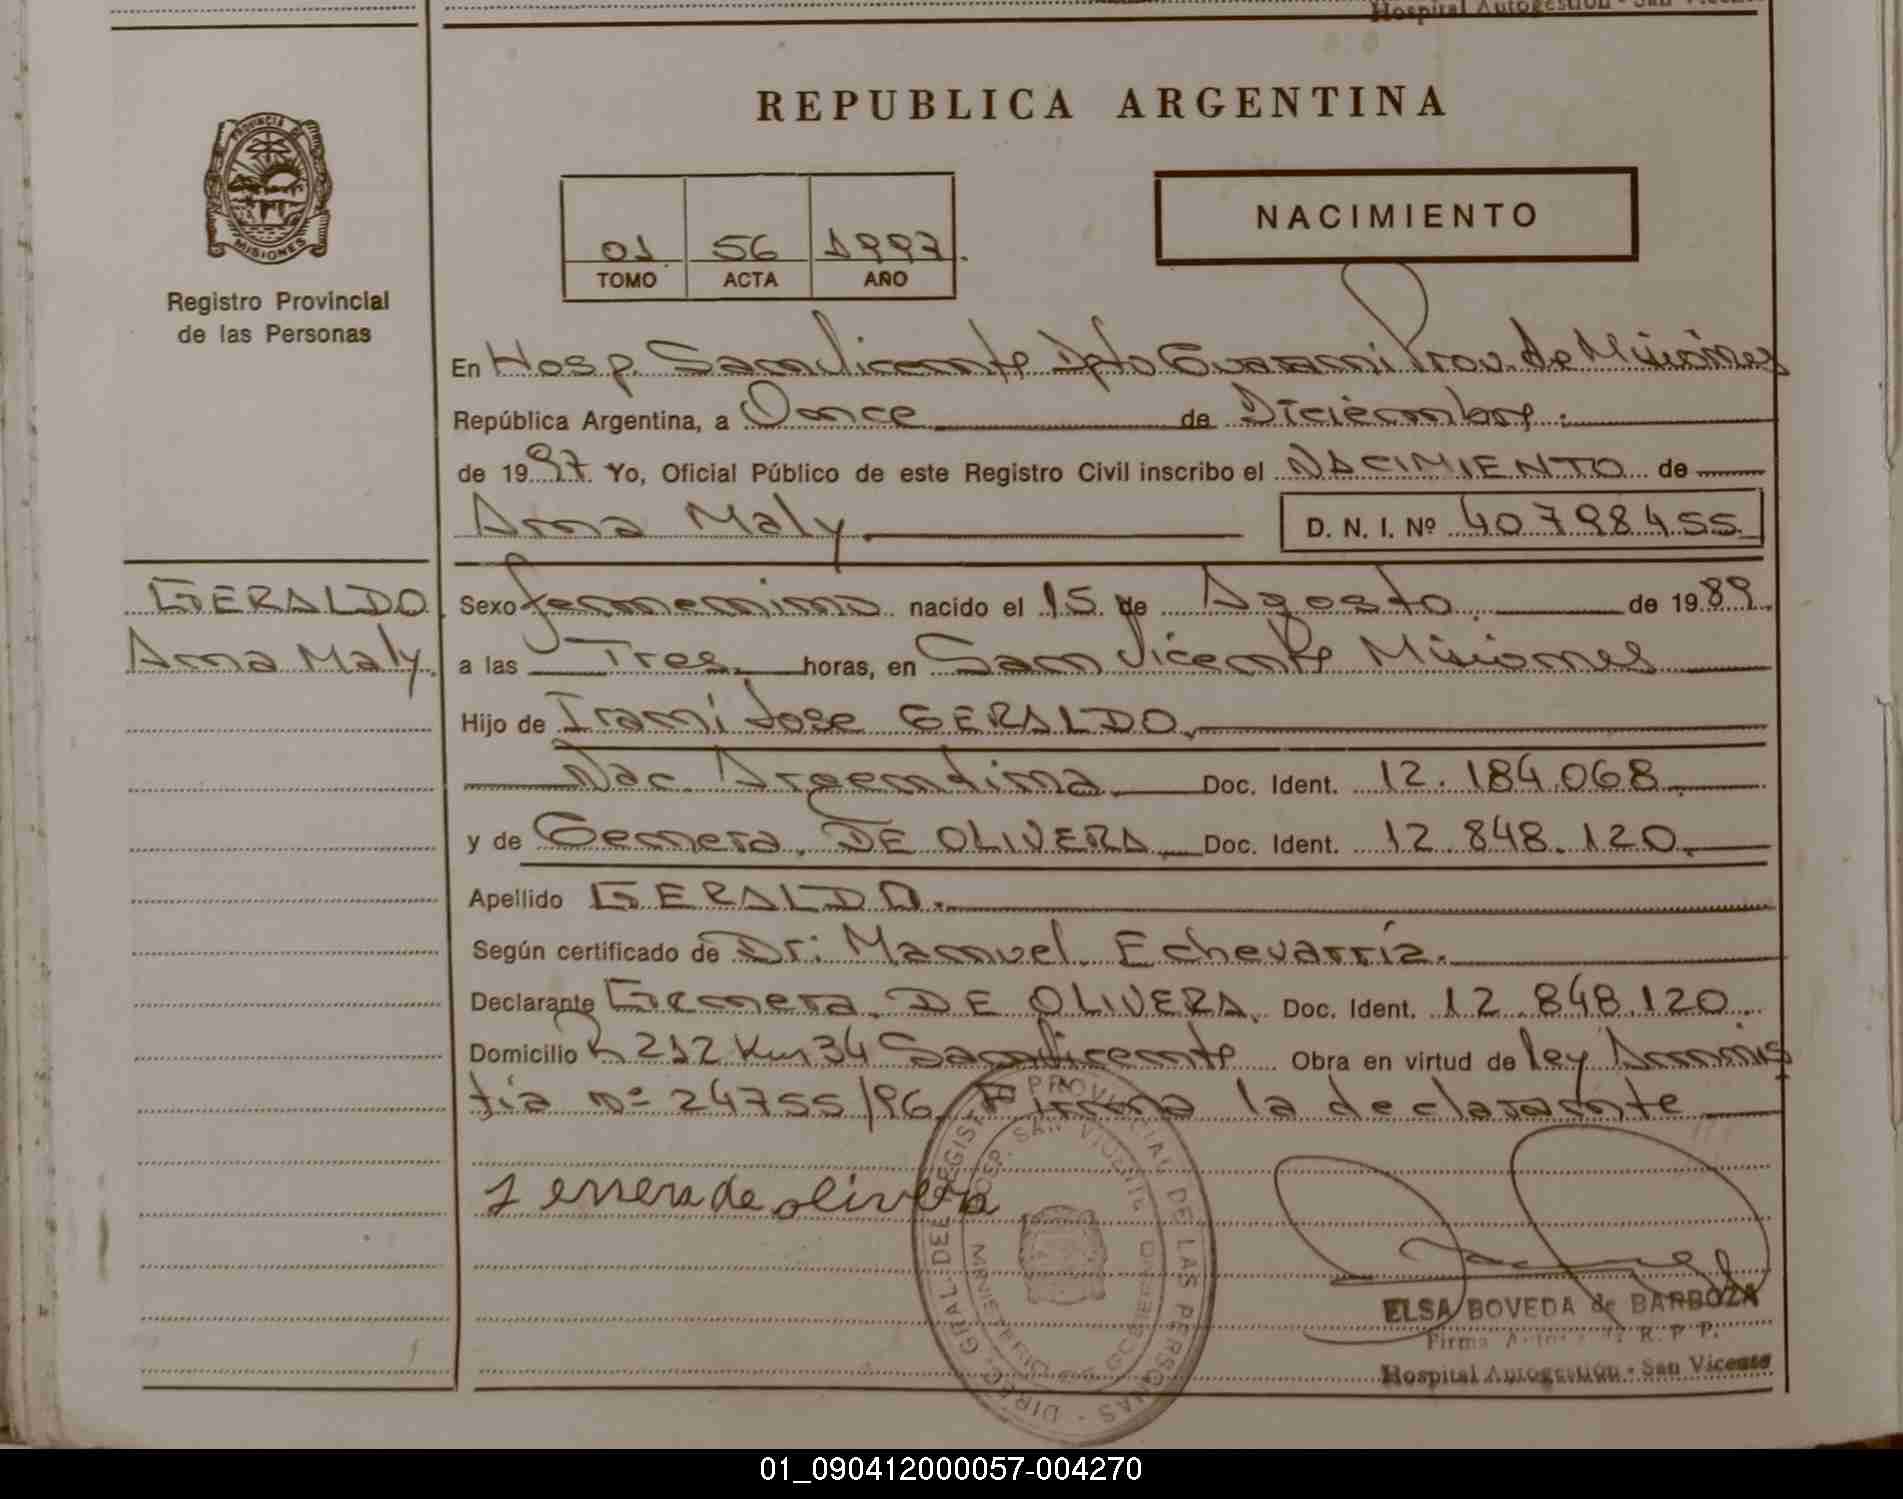 Hospital Autogestión - San Vicente
REPUBLICA ARGENTINA
PROVINCIA DE
MISIONES
Registro Provincial
de las Personas
01 56 1997
TOMO ACTA AÑO
NACIMIENTO
En Hosp. San Vicente Dpto Guarani Prov. de Misiones
República Argentina, a Once de Diciembre
de 1997 Yo, Oficial Público de este Registro Civil inscribo el NACIMIENTO de
Ana Maly D. N. I. Nº 40.798.455
GERALDO
Ana Maly
Sexo femenino nacido el 15 de Agosto de 1989
a las Tres horas, en San Vicente Misiones
Hijo de Irani Jose GERALDO
Nac. Argentina Doc. Ident. 12.184.068
y de Genera DE OLIVERA Doc. Ident. 12.848.120
Apellido GERALDO.
Según certificado de Dr: Manuel Echevarría.
Declarante Genera DE OLIVERA Doc. Ident. 12.848.120
Domicilio R 212 Km 34 San Vicente Obra en virtud de ley Amnis
tia nº 24755/96 Firma la declarante
de olivera
DIREC. GRAL. DEL REGISTRO PROVINCIAL DE LAS PERSONAS
HOSP. SAN VICENTE
MINISTERIO DE GOBIERNO
ELSA BOVEDA de BARBOZA
Firma R. P. P.
Hospital Autogestión - San Vicente
01_090412000057-004270